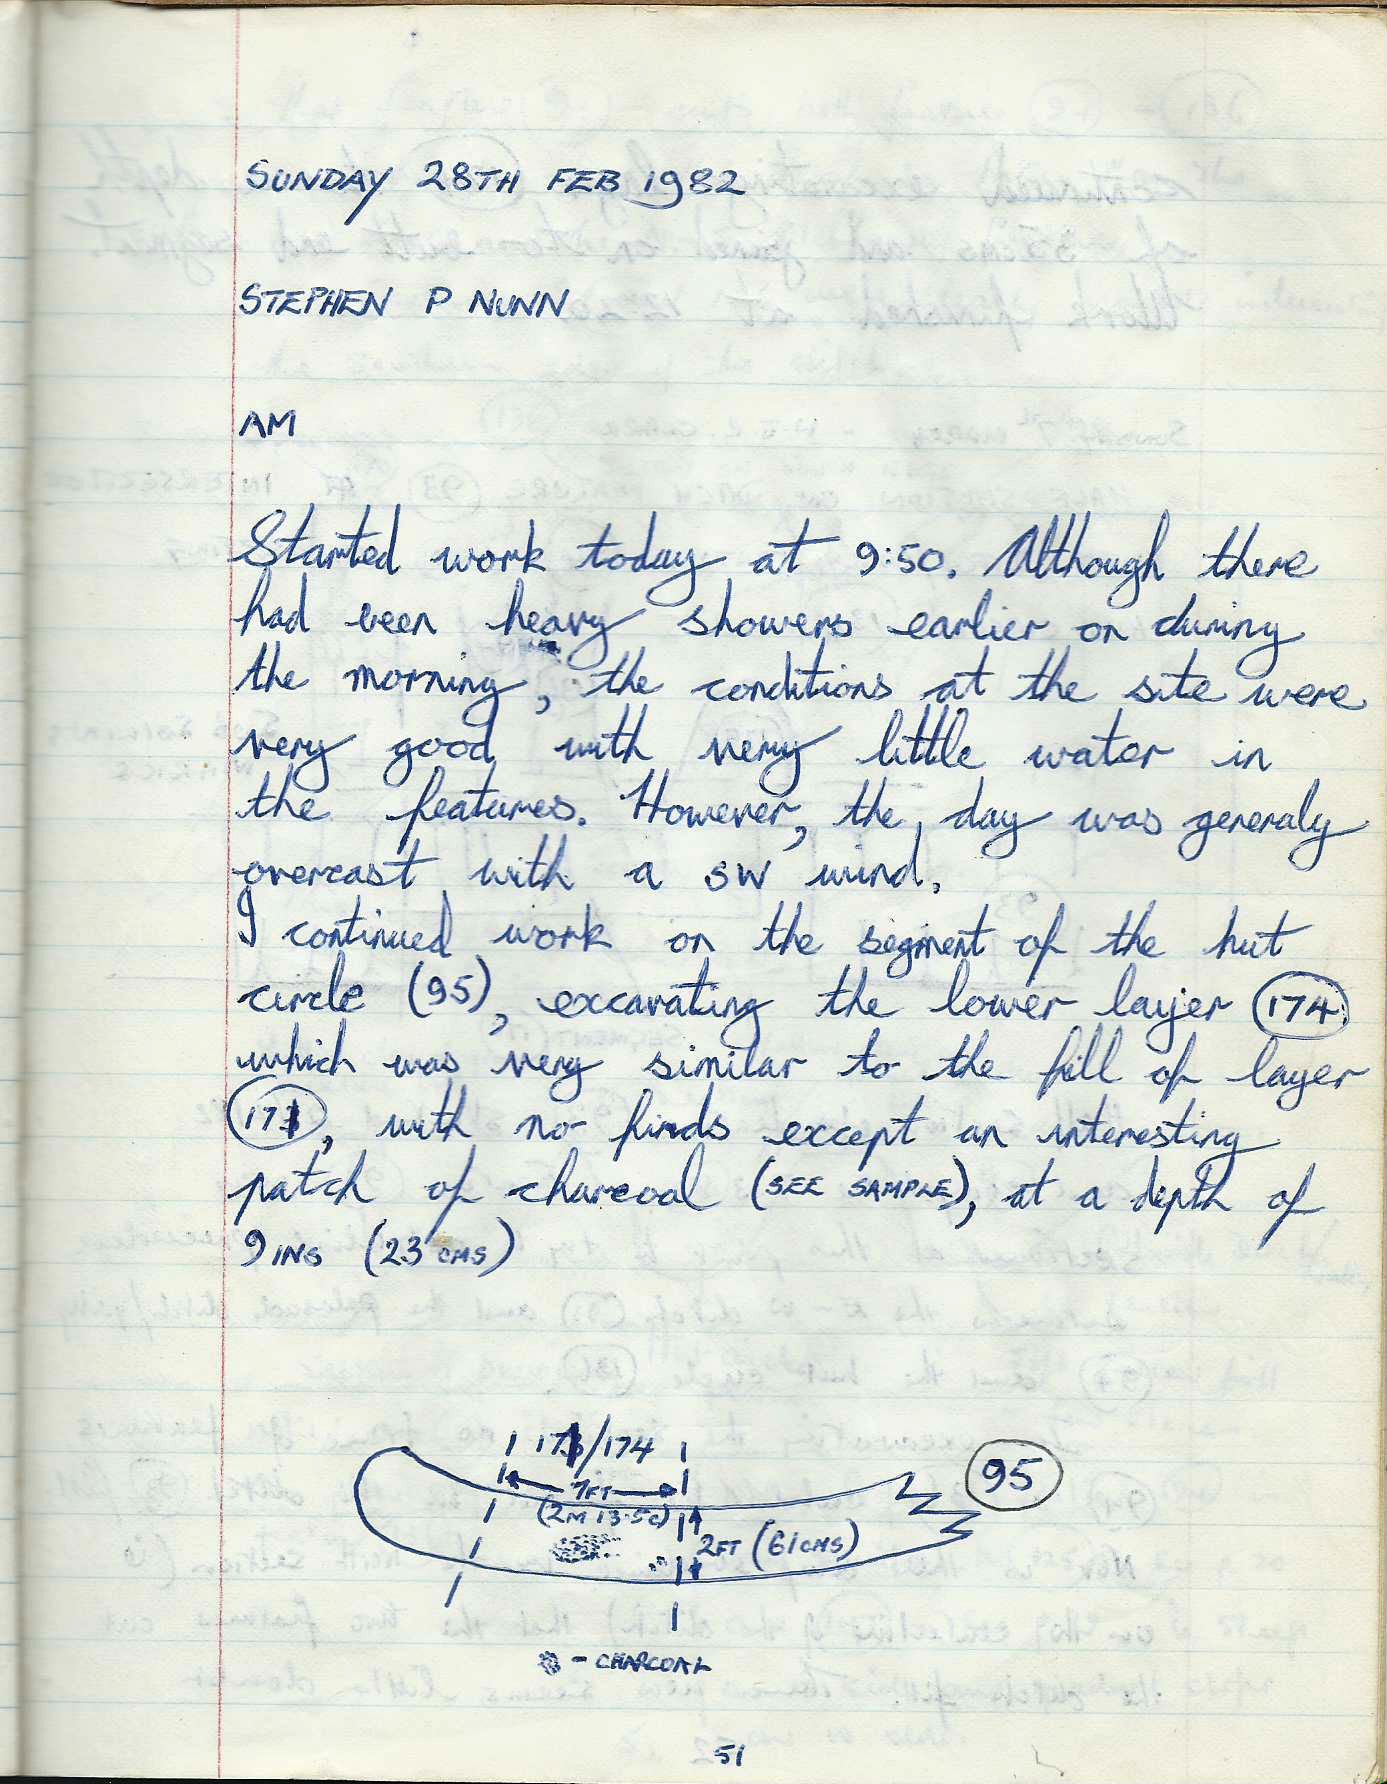 SUNDAY 28TH FEB 1982
STEPHEN P NUNN
AM
Started work today at 9:50. Although there
had been heavy showers earlier on during
the morning, the conditions at the site were
very good with very little water in
the features. However, the day was generaly
overcast with a SW wind.
I continued work on the segment of the hut
circle (95), excavating the lower layer 174
which was very similar to the fill of layer
173, with no finds except an interesting
patch of charcoal (SEE SAMPLE), at a depth of
9 INS (23 CMS)
173/174
95
7FT
(2M 13.5C)
2FT (61CMS)
- CHARCOAL
51